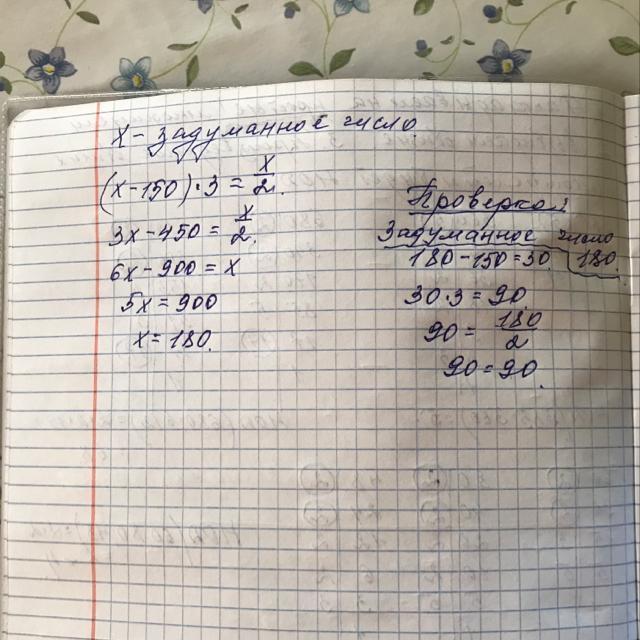 х - задуманное число.
(х-150)·3 = х/2.
3х-450 = х/2.
6х-900 = х
5х = 900
х = 180.
Проверка:
Задуманное число
180-150=30. 180.
30·3 = 90
90 = 180/2
90 = 90.